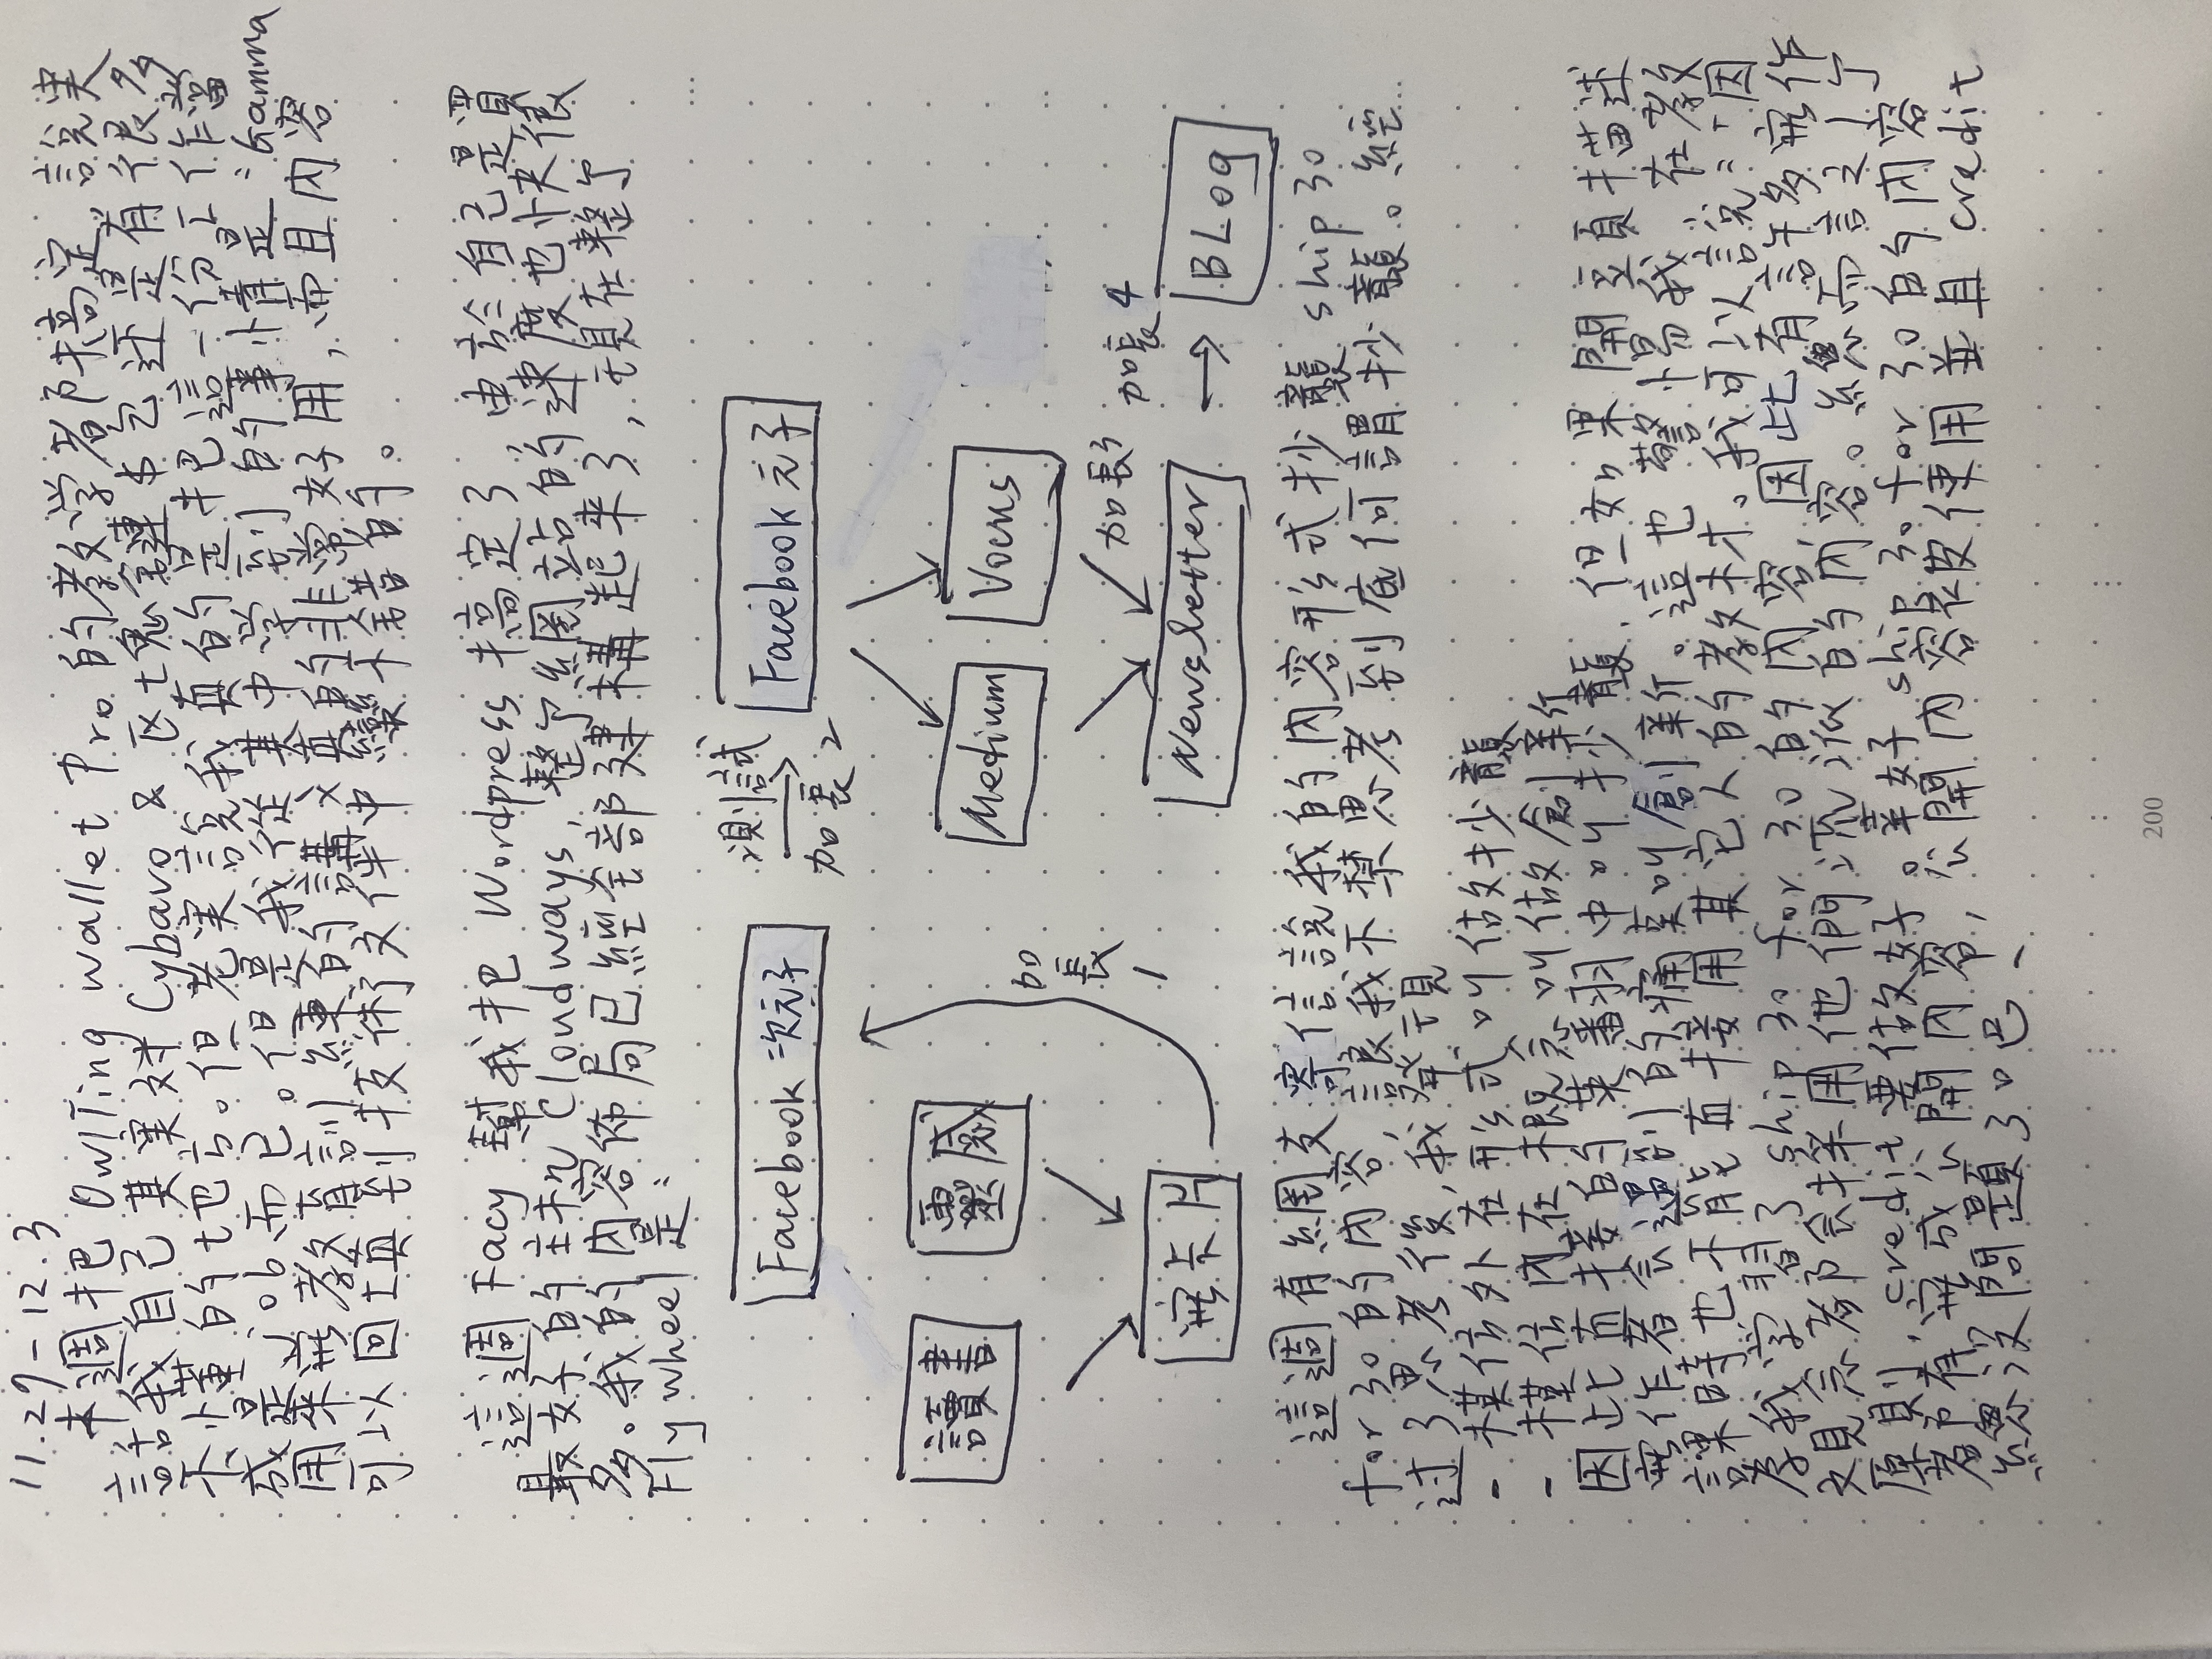 11.29-12.3
本週把 OwlTing wallet Pro 的教学都搞定,說実
話我自己其実对 Cybavo & 区塊鏈錢包还是有很多
不懂的地方。但老実說我真的是把這一份工作當
成是 job 而已。但是我從其中学到的事情是:Gamma
用來寫教育訓練的講义真的非常好用,而且內容
可以回填到技術文件中蠻不錯的。
這週 Facy 幫我把 Wordpress 搞定了,由於自己是買
最好的主机 Cloudways, 整个網站的速度也快很
多。我的內容佈局已經全部建構起來了,現在整个
Flywheel 是:
Facebook 次元子
測試
加長2
Facebook 元子
讀書
靈感
加長1
Medium
Vocus
寫卡片
加長3
Newsletter
加長4
BLog
這週有網友寄信說我的內容形式抄襲 ship 30
for 30 的內容,讓我不禁思考到底何謂抄襲。經
过了思考後,我發現
- 模仿外在形式叫做抄襲
- 模仿內在概念叫做創新
因此直接的英翻中叫抄襲,但如果開頭描述
寫作者会遇到的痛點叫創新。這也警惕我,在教
課時也不能直接用其它人的教材。我可以說:「因
為我学習了 ship 30 for 30 的內容,因此有許多寫作
观念都会採用他們流派的內容。總而言之1个
原則, credit 要做好。幸好 ship 30 for 30 的內容
都有寫成公開內容,公開內容被使用並且 credit
總沒問題了吧、
200